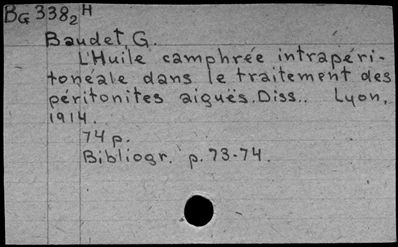 BG 3382 H
Baudet, G.
L'Huile camphrée intrapéri-
tonéale dans le traitement des
péritonites aiguës. Diss.. Lyon,
1914.
74 p.
Bibliogr. p. 73-74.